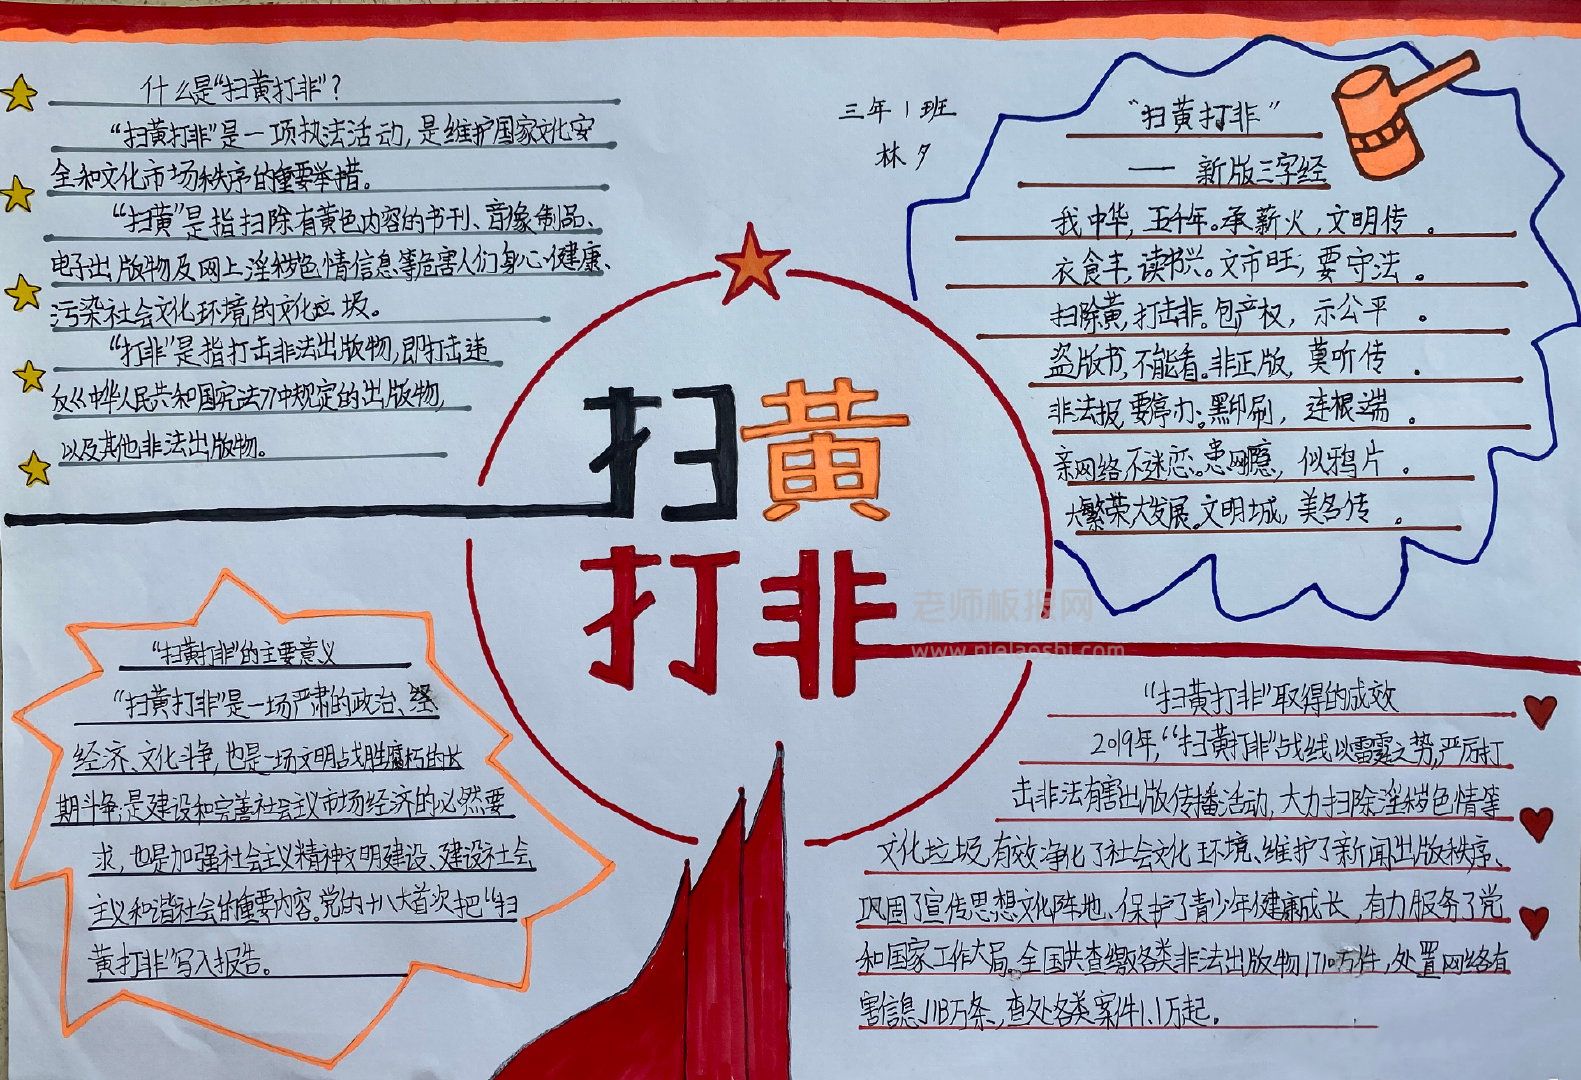 什么是“扫黄打非”？
“扫黄打非”是一项执法活动，是维护国家文化安
全和文化市场秩序的重要举措。
“扫黄”是指扫除有黄色内容的书刊、音像制品、
电子出版物及网上淫秽色情信息等危害人们身心健康、
污染社会文化环境的文化垃圾。
“打非”是指打击非法出版物，即打击违
反《中华人民共和国宪法》中规定的出版物，
以及其他非法出版物。
三年1班
林夕
“扫黄打非”
——新版三字经
我中华，五千年。承薪火，文明传。
衣食丰，读书兴。文市旺，要守法。
扫除黄，打击非。包产权，示公平。
盗版书，不能看。非正版，莫听传。
非法报，要停办。黑印刷，连根端。
亲网络，不迷恋。患网瘾，似鸦片。
大繁荣大发展。文明城，美名传。
扫黄
打非
老师板报网
www.nielaoshi.com
“扫黄打非”的主要意义
“扫黄打非”是一场严肃的政治、经
经济、文化斗争，也是一场文明战胜腐朽的长
期斗争；是建设和完善社会主义市场经济的必然要
求，也是加强社会主义精神文明建设、建设社会
主义和谐社会的重要内容。党的十八大首次把“扫
黄打非”写入报告。
“扫黄打非”取得的成效
2019年，“扫黄打非”战线以雷霆之势，严厉打
击非法有害出版传播活动，大力扫除淫秽色情等
文化垃圾，有效净化了社会文化环境、维护了新闻出版秩序、
巩固了宣传思想文化阵地、保护了青少年健康成长，有力服务了党
和国家工作大局。全国共查缴各类非法出版物1710万件，处置网络有
害信息1113万条，查处各类案件1.1万起。